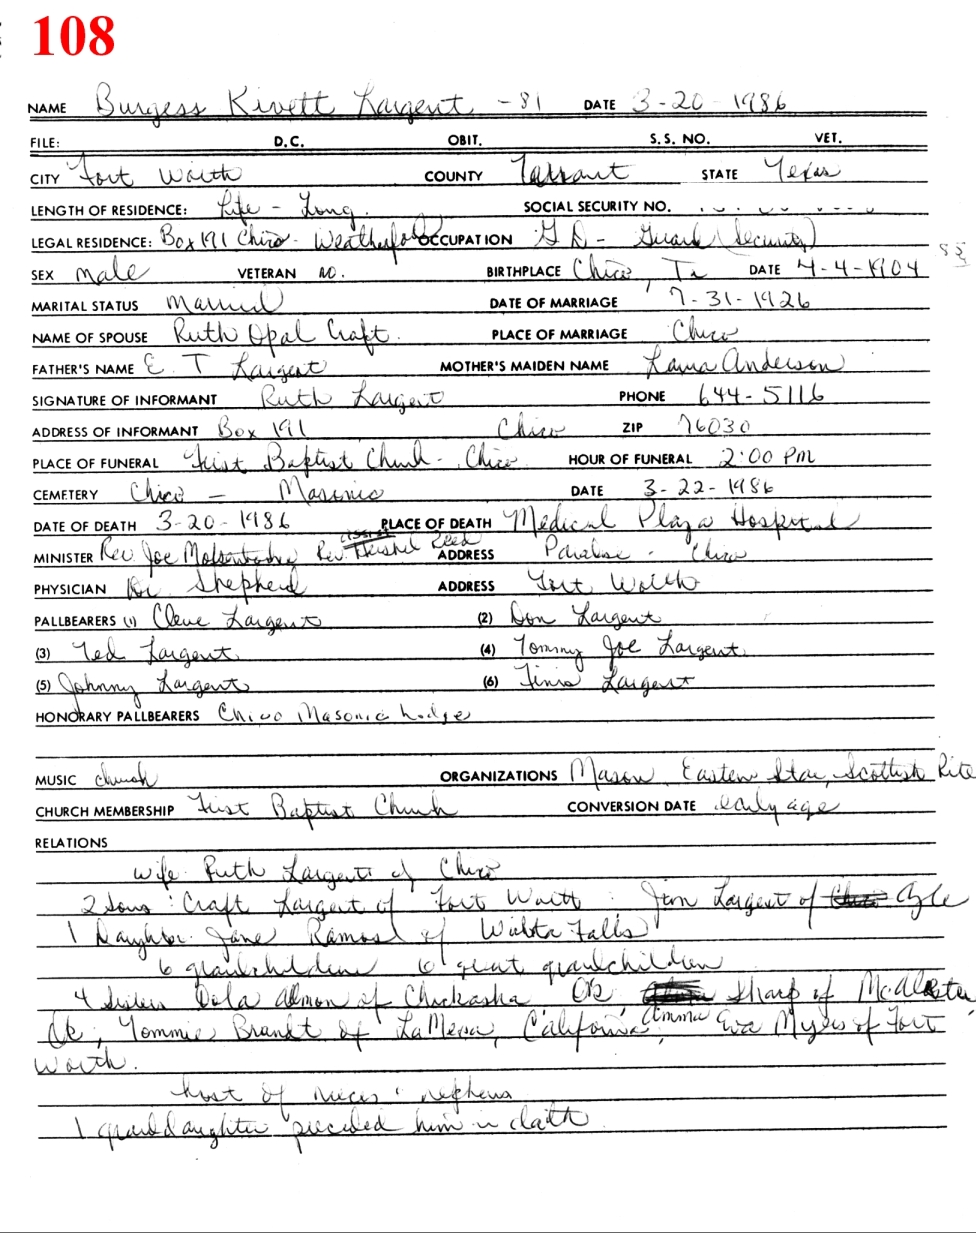 108
NAME Burgess Kivett Largent -81 DATE 3-20-1986
FILE: D.C. OBIT. S.S. NO. VET.
CITY Fort Worth COUNTY Tarrant STATE Texas
LENGTH OF RESIDENCE: Life-Long. SOCIAL SECURITY NO.
LEGAL RESIDENCE: Box 191 Chico - Weatherford OCCUPATION G D - Guard (Security)
SEX male VETERAN no. BIRTHPLACE Chico, Tx DATE 4-4-1904
MARITAL STATUS Married DATE OF MARRIAGE 7-31-1926
NAME OF SPOUSE Ruth Opal Craft. PLACE OF MARRIAGE Chico
FATHER'S NAME E. T Largent MOTHER'S MAIDEN NAME Laura Anderson
SIGNATURE OF INFORMANT Ruth Largent PHONE 644-5116
ADDRESS OF INFORMANT Box 191 Chico ZIP 76030
PLACE OF FUNERAL First Baptist Church - Chico HOUR OF FUNERAL 2:00 PM
CEMETERY Chico - Masonic DATE 3-22-1986
DATE OF DEATH 3-20-1986 PLACE OF DEATH Medical Plaza Hospital
MINISTER Rev. Joe Rev. Hershel Reed ADDRESS Paradise - Chico
PHYSICIAN Dr. Shepherd ADDRESS Fort Worth
PALLBEARERS (1) Cleve Largent (2) Don Largent
(3) Ted Largent (4) Tommy Joe Largent
(5) Johnny Largent (6) Largent
HONORARY PALLBEARERS Chico Masonic Lodge
MUSIC church ORGANIZATIONS Mason, Eastern Star, Scottish Rite
CHURCH MEMBERSHIP First Baptist Church CONVERSION DATE early age
RELATIONS
wife Ruth Largent of Chico
2 Sons: Craft Largent of Fort Worth: Jim Largent of Azle
1 Daughter: Jane Ramos of Wichita Falls
6 grandchildren 6 great grandchildren
4 Sisters Almon of Chickasha Ok, Sharp of McAlester
Ok, Tommie Brandt of LaMesa, California, Emma Eva Myers of Fort
Worth.
host of nieces & nephews
1 granddaughter preceded him in death